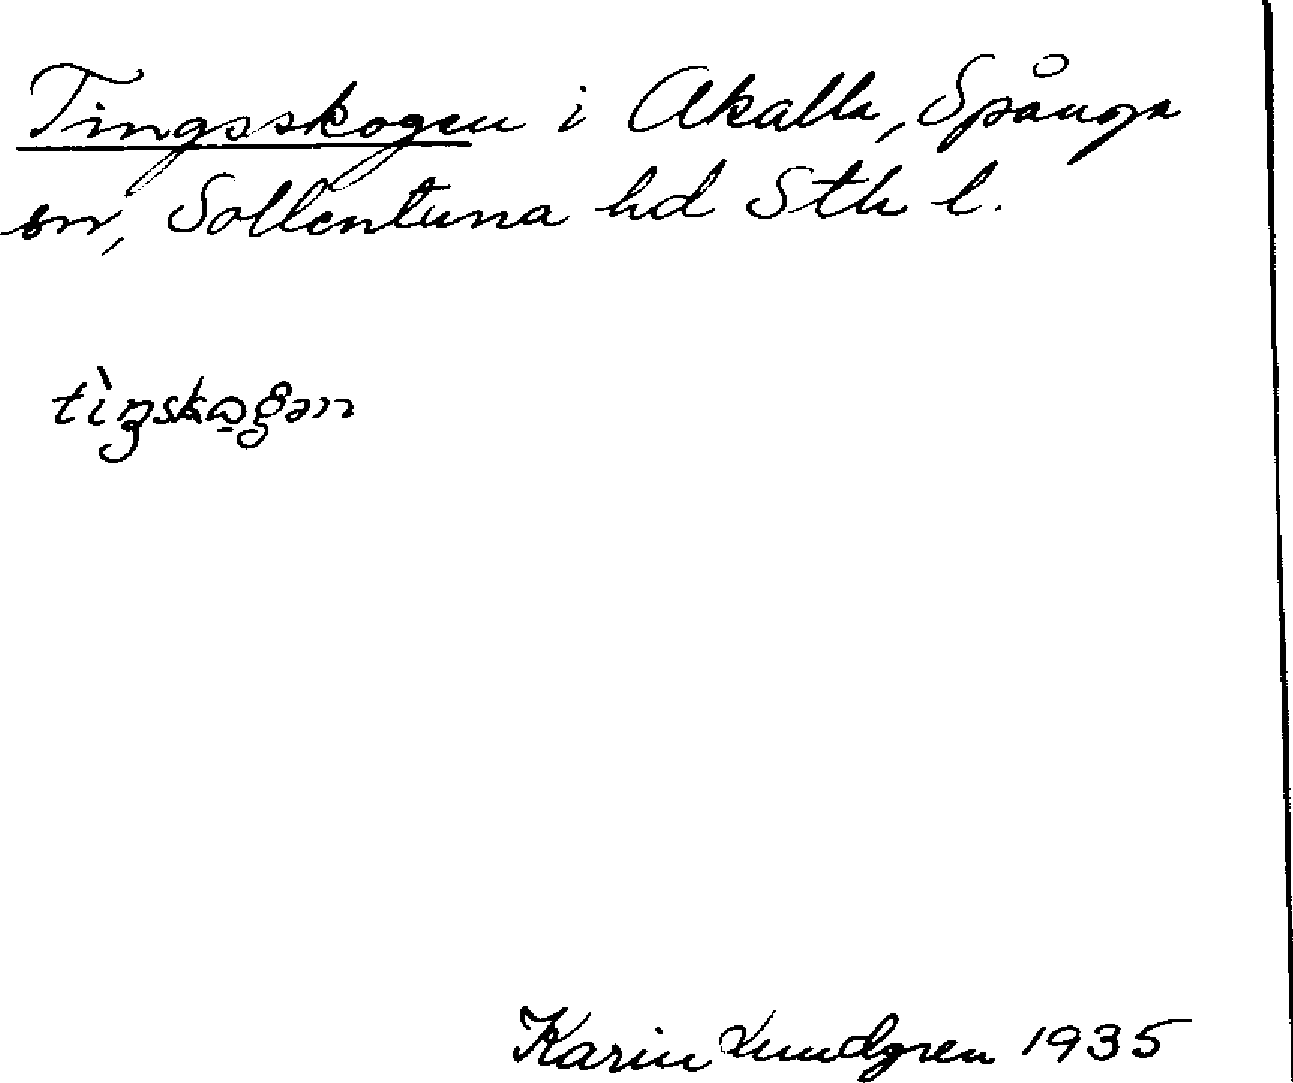 Tingsskogen i Akalla, Spånga
sn, Sollentuna hd Sth l.
tìŋskogən
Karin Lundgren 1935